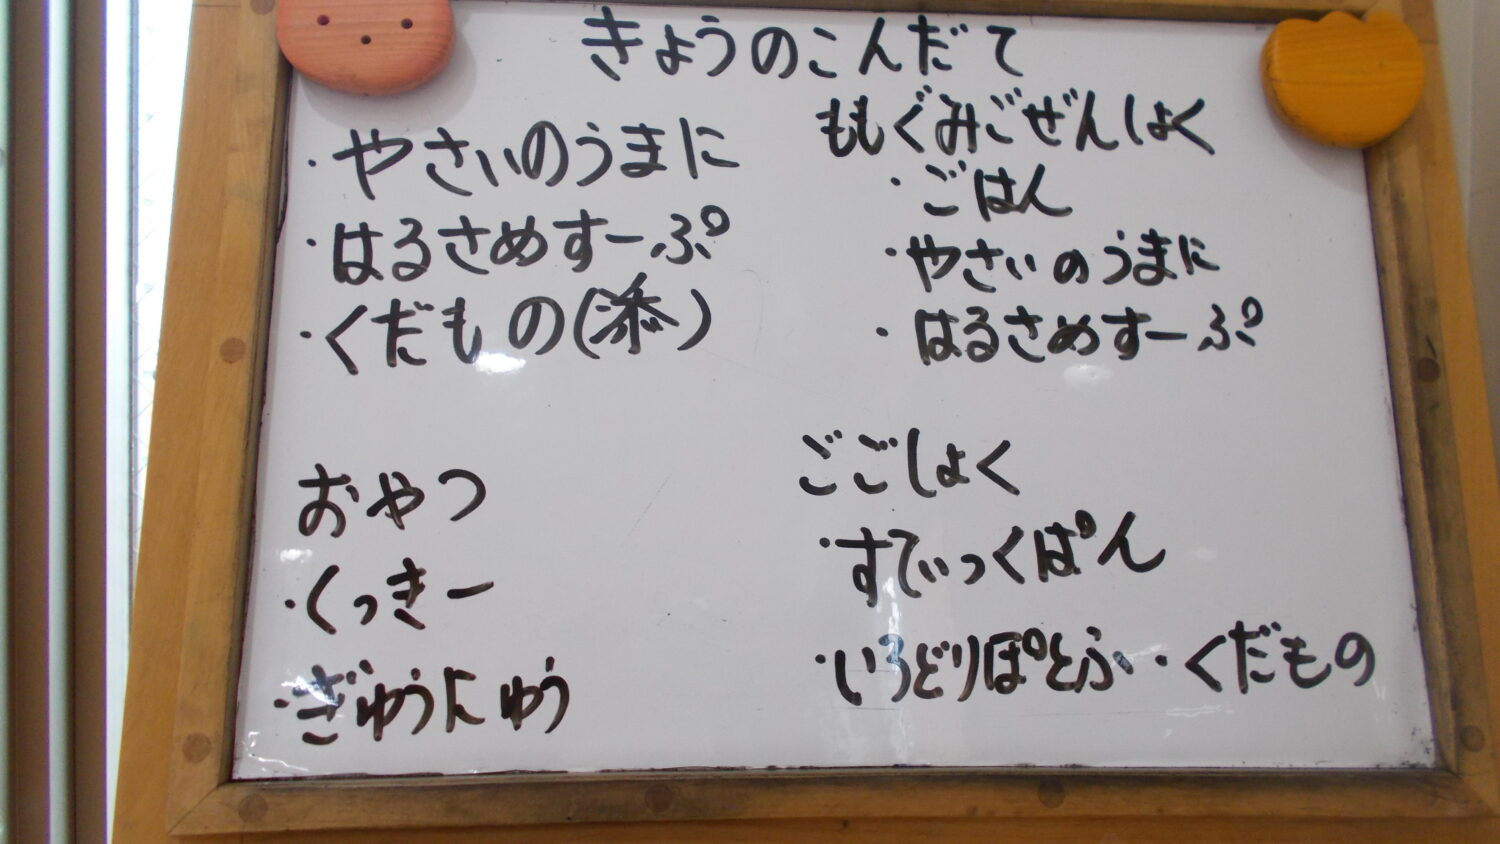 きょうのこんだて
・やさいのうまに
・はるさめすーぷ
・くだもの(添)
おやつ
・くっきー
・ぎゅうにゅう
ももぐみごぜんしょく
・ごはん
・やさいのうまに
・はるさめすーぷ
ごごしょく
・すてぃっくぱん
・いろどりぽとふ・くだもの